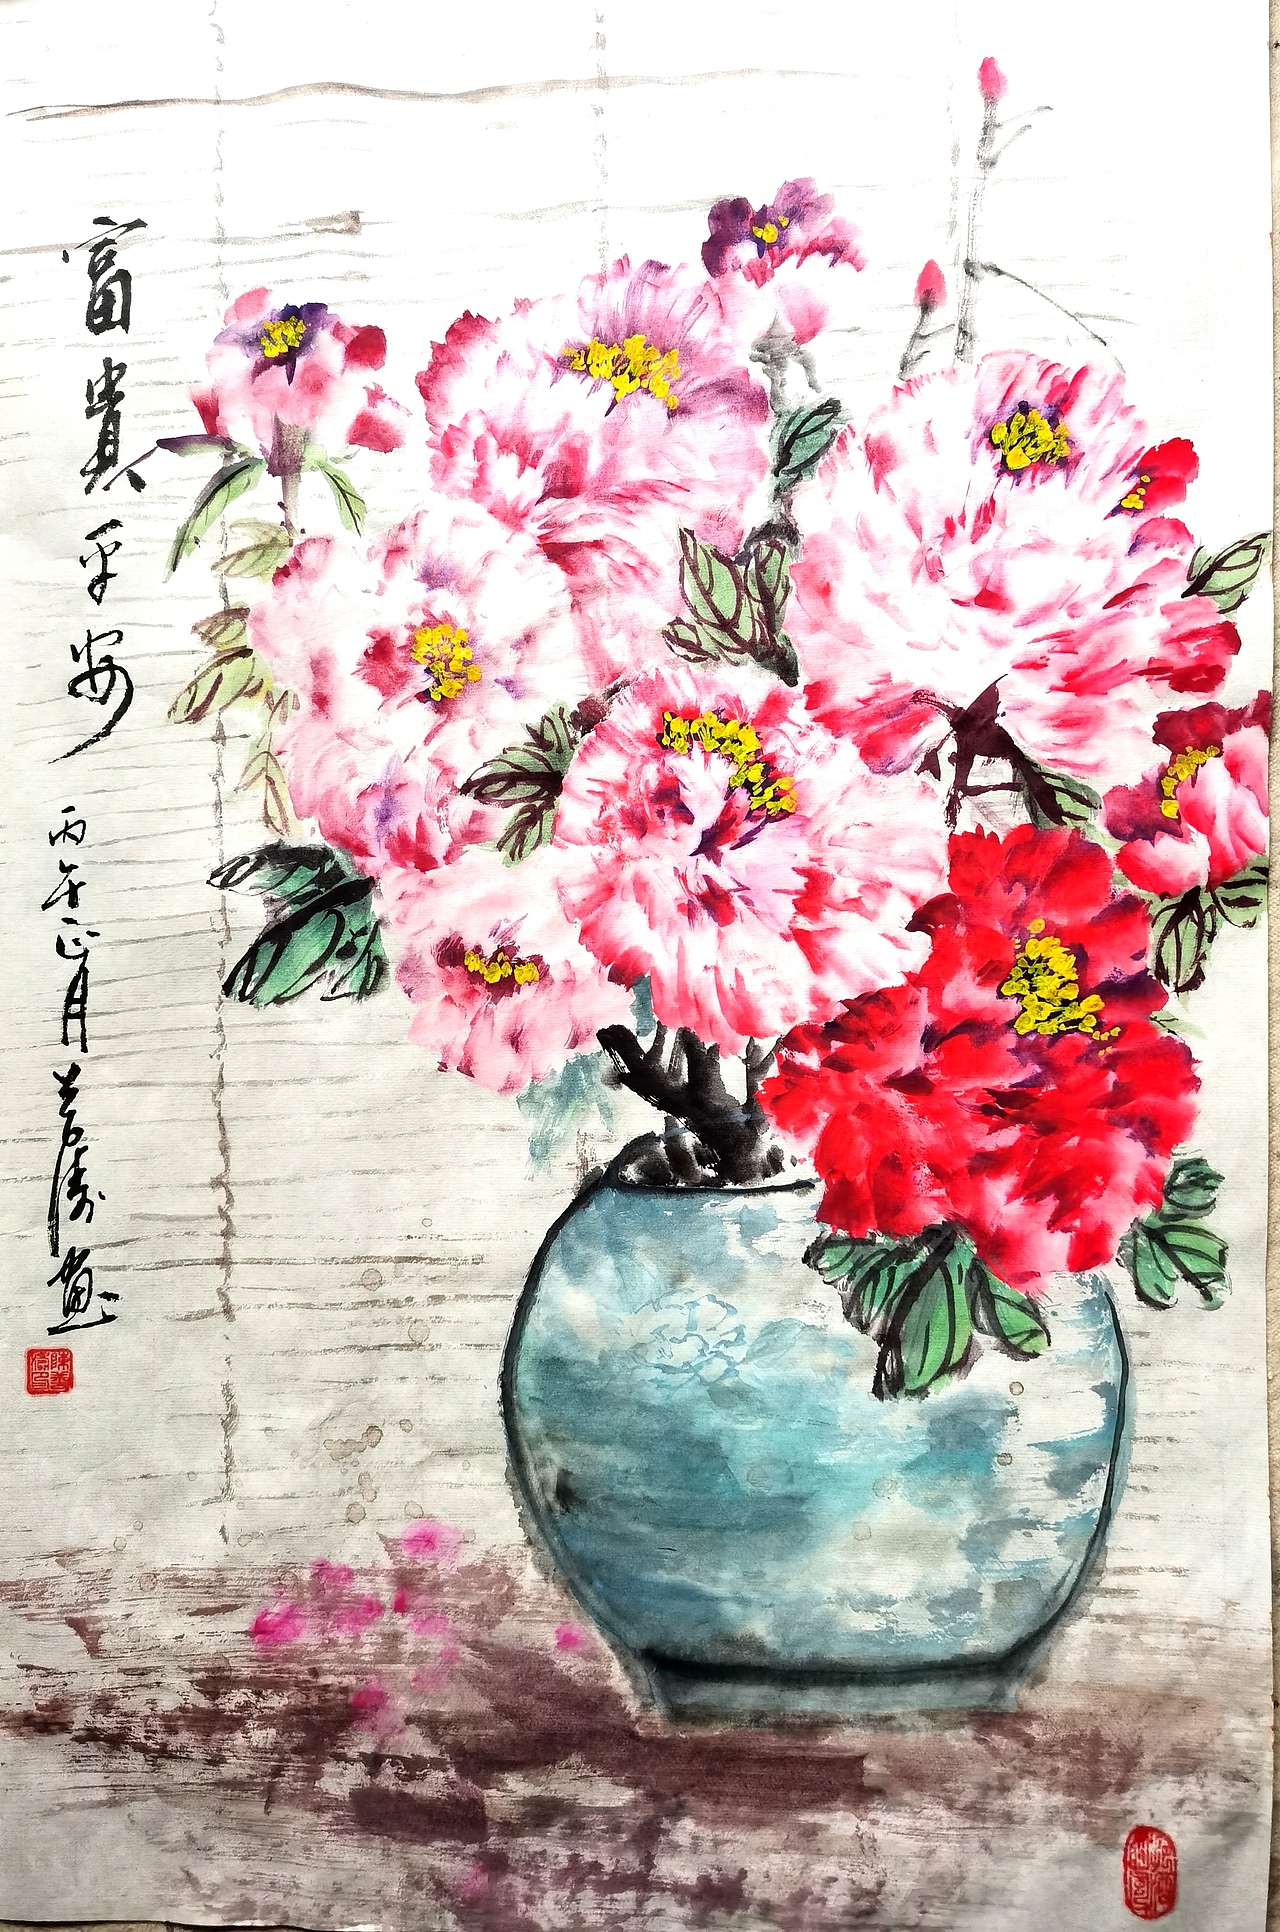 富貴平安
丙午正月善濤畫